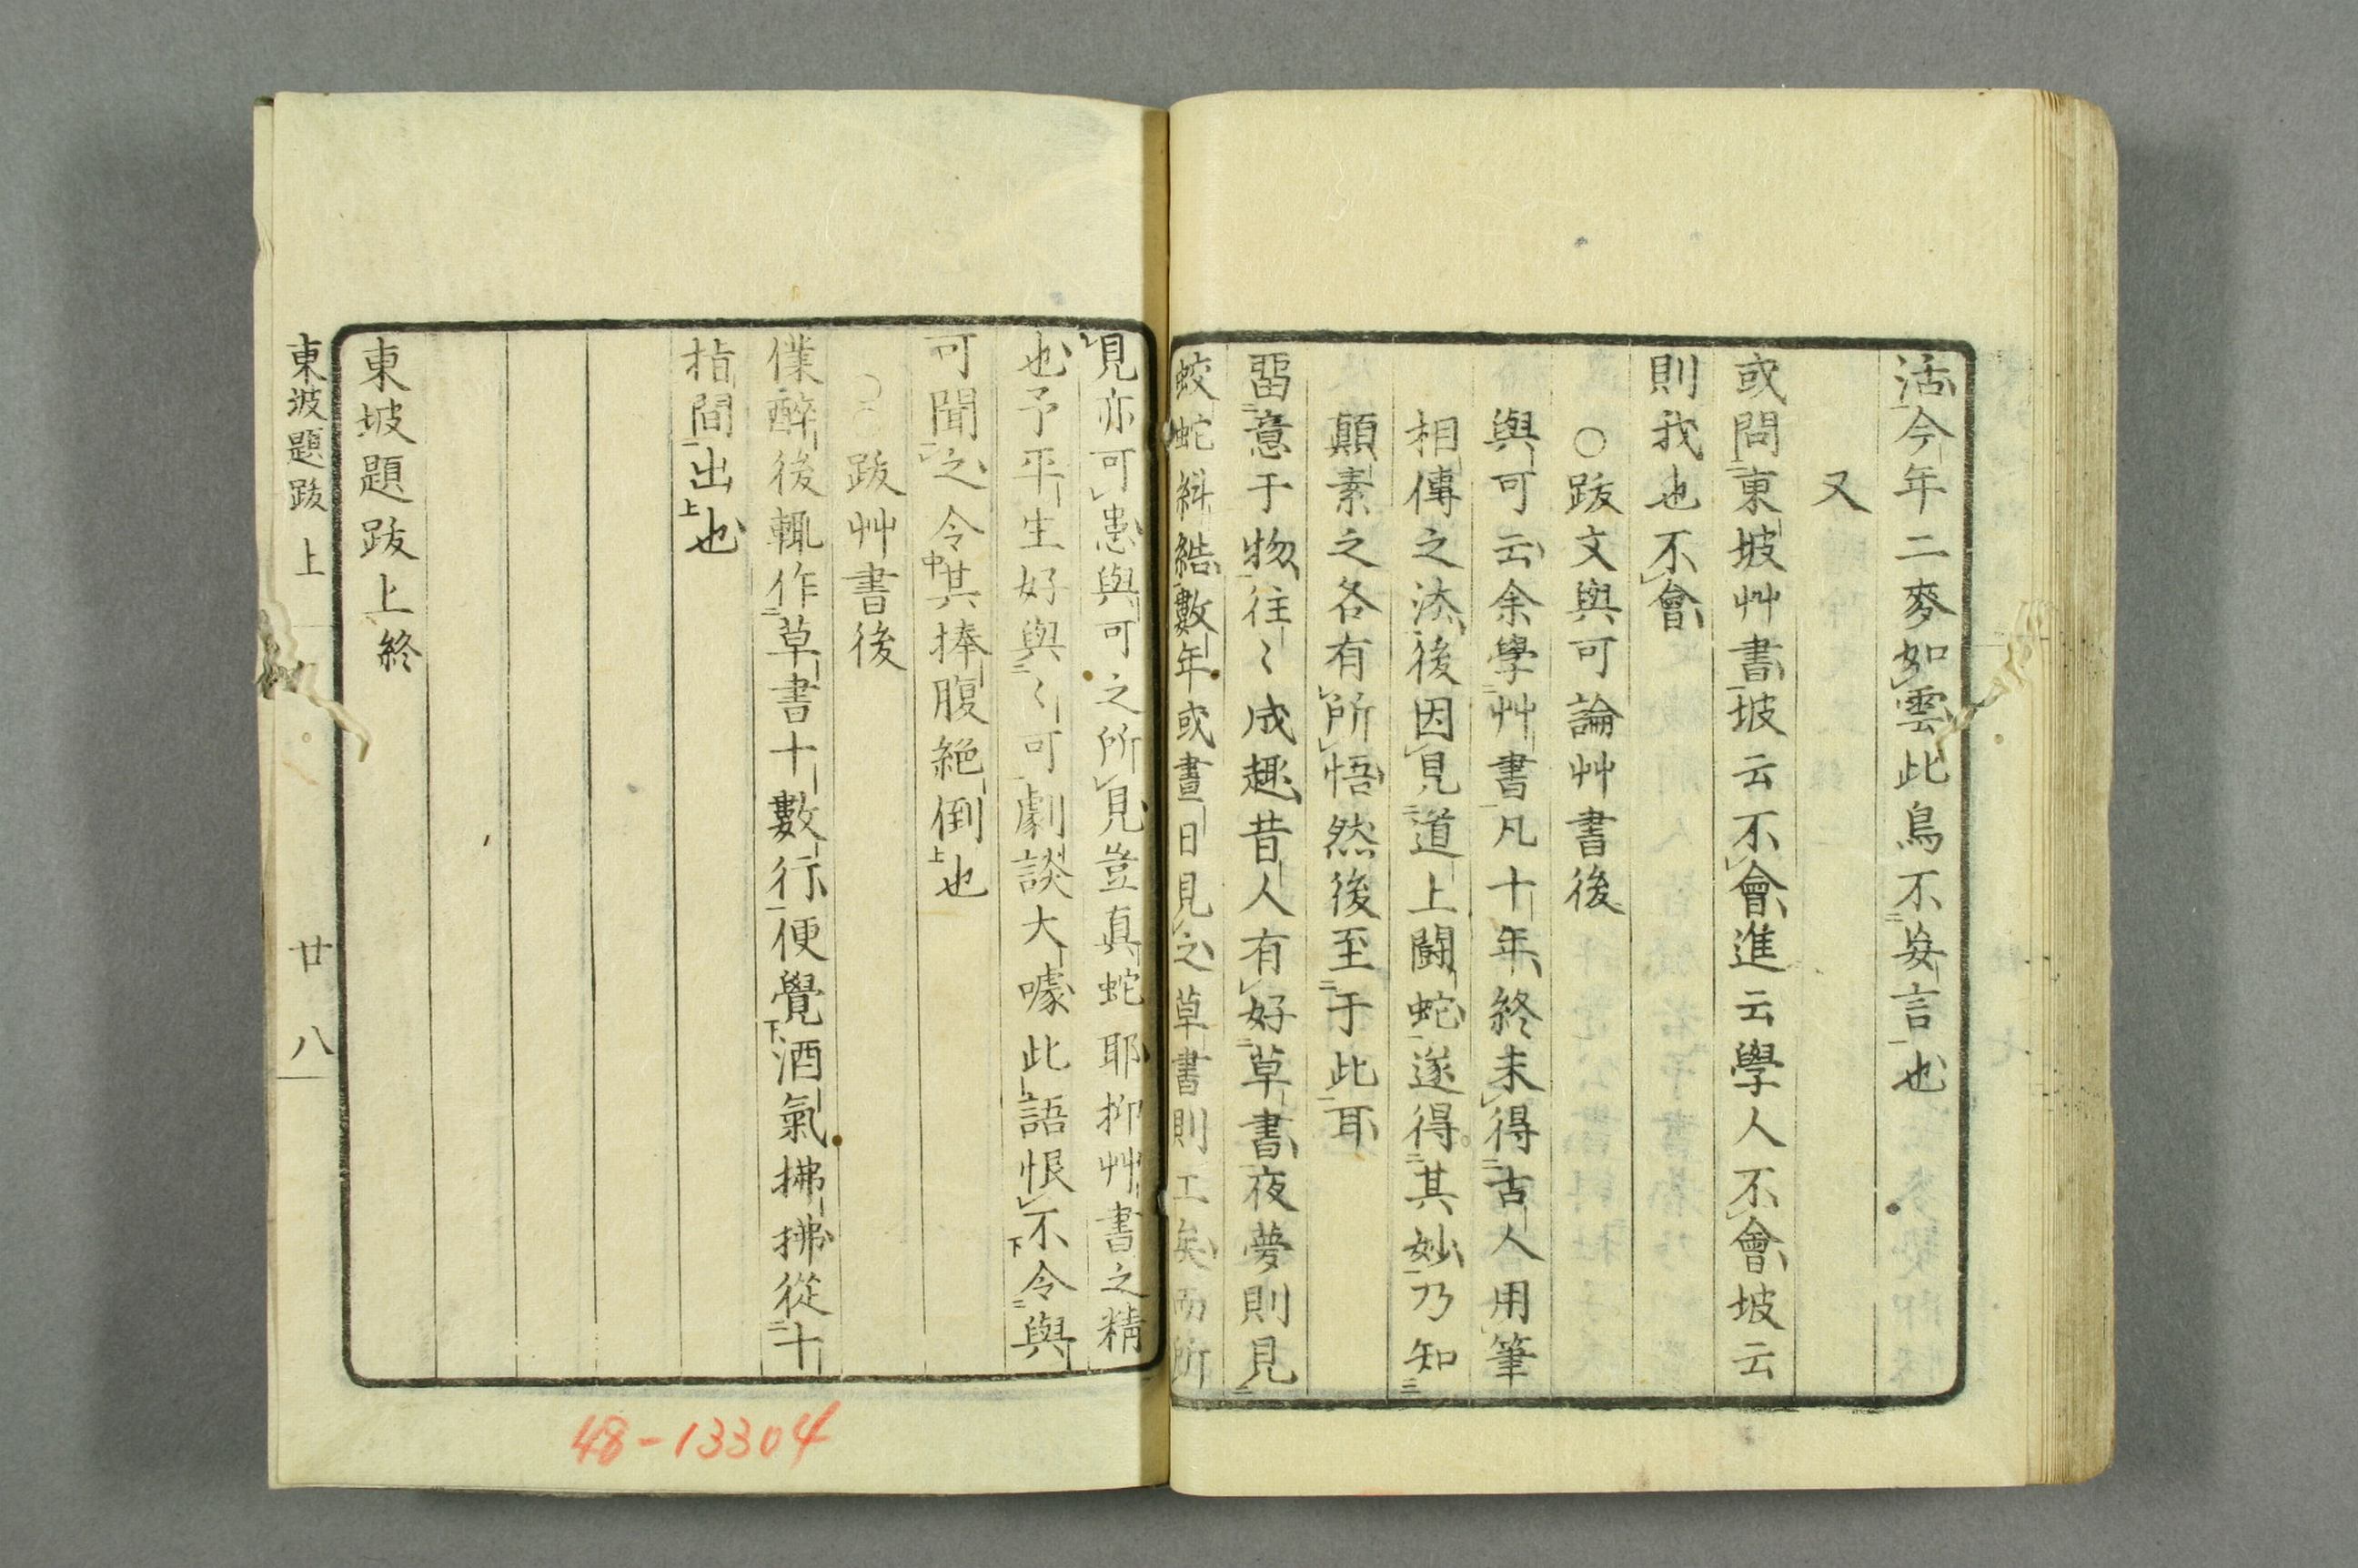 活今年二麥如雲此鳥不妄言也
又
或問東坡艸書坡云不會進云學人不會坡云
則我也不會
○跋文與可論艸書後
與可云余學艸書凡十年終未得古人用筆
相傳之法後因見道上鬪蛇遂得其妙乃知
顛素之各有所悟然後至于此耳
畱意于物往〻成趣昔人有好草書夜夢則見
蛟蛇糾結數年或晝日見之草書則工矣而所
見亦可患與可之所見豈真蛇耶抑艸書之精
也予平生好與〻可劇談大噱此語恨不令與
可聞之令其捧腹絕倒也
○跋艸書後
僕醉後輒作草書十數行便覺酒氣拂拂從十
指間出也
東坡題跋上終
東坡題跋 上 廿八
48-13304